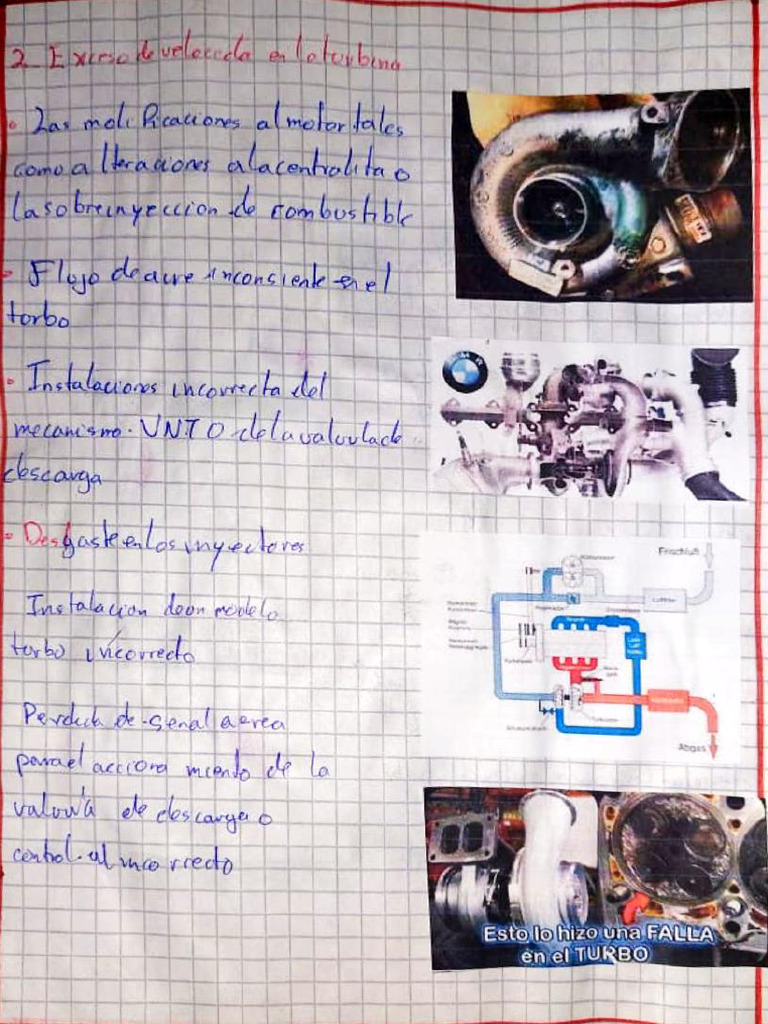 2 Exceso de velocida en la turbina
• Las modificaciones al motor tales
como alteraciones a la centralita o
la sobreinyeccion de combustible
• Flujo de aire inconsiente en el
torbo
• Instalaciones incorrecta del
mecanismo. VNT O de la valvula de
descarga
• Desgaste en los inyectores
Instalacion de on modelo
turbo incorrecto
Perdida de señal aerea
para el acciona miento de la
valvula de descarga o
control. al incorrecto
Frischluft
Abgas
Esto lo hizo una FALLA
en el TURBO